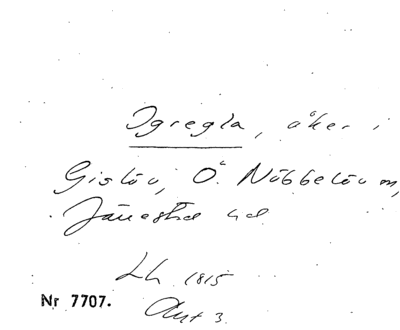 Igregla, åker i
Gislöv, Ö. Nöbbelöv sn,
Järrestad hd
Lh 1815
Nr 7707.
Akt 3.